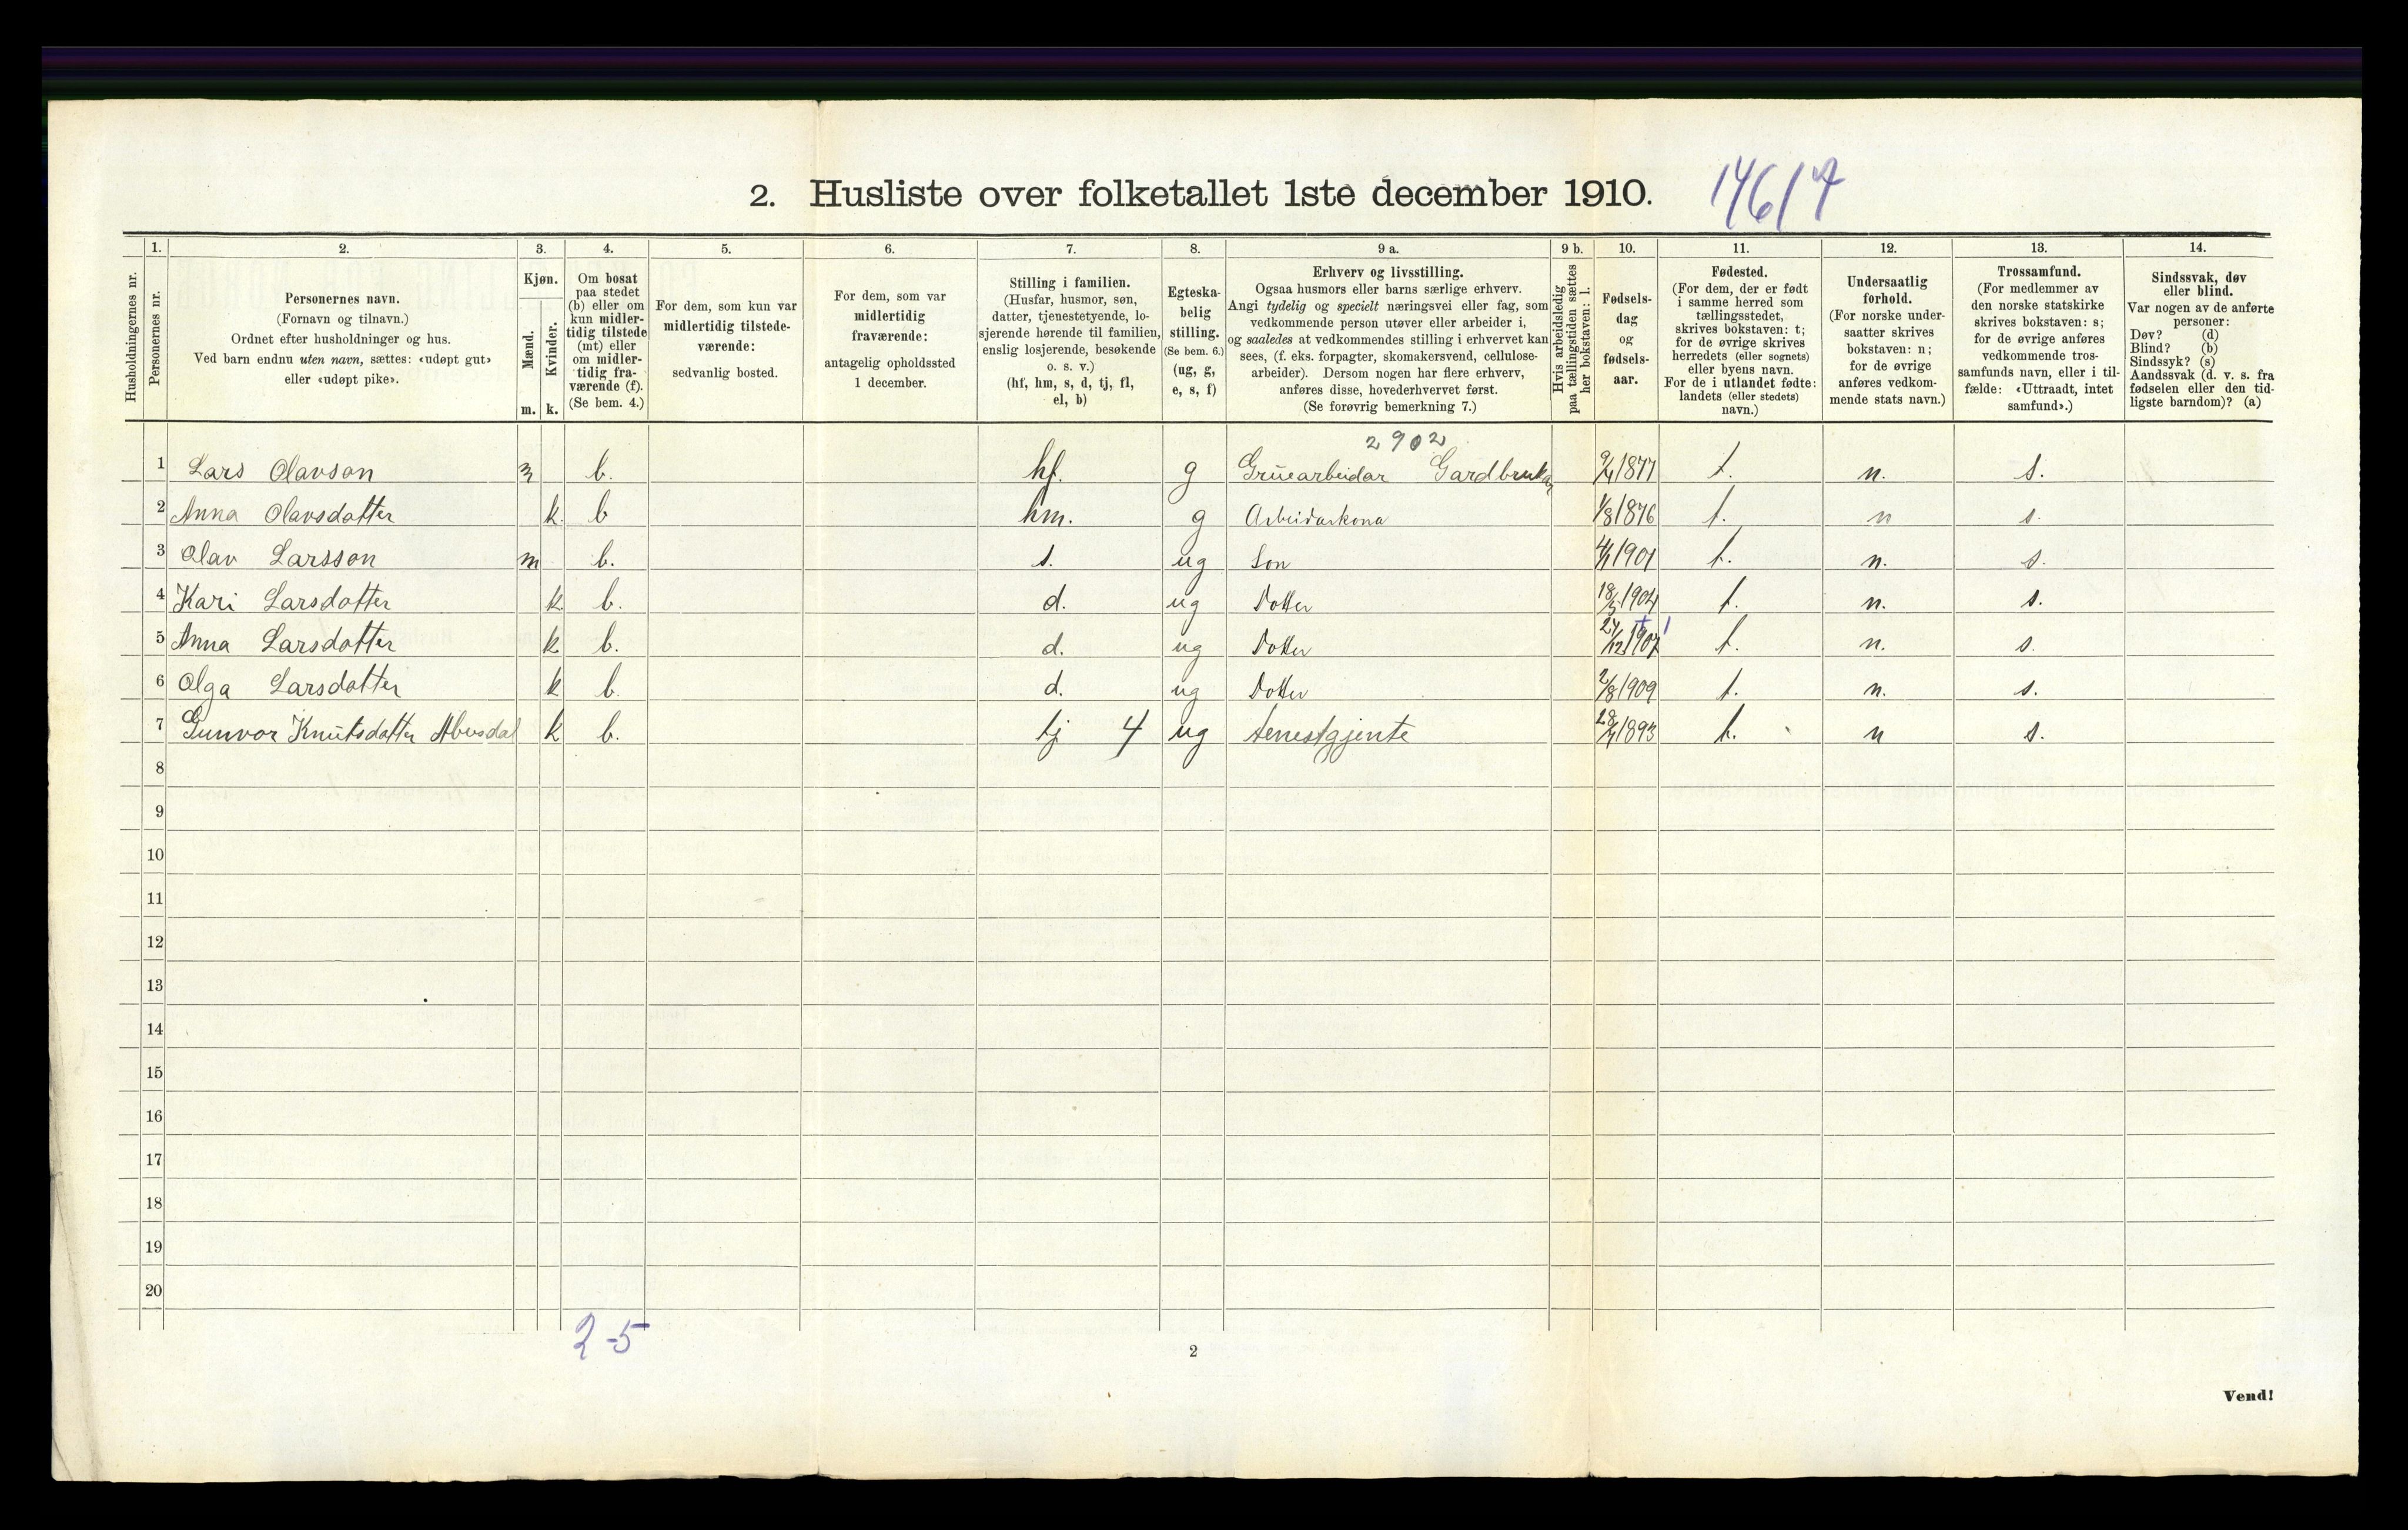 2. Husliste over folketallet 1ste december 1910. 14617
Husholdningernes nr.
1.
Personernes nr.
2.
Personernes navn.
(Fornavn og tilnavn.)
Ordnet efter husholdninger og hus.
Ved barn endnu uten navn, sættes: «udøpt gut»
eller «udøpt pike».
3.
Kjøn.
Mænd.
Kvinder.
m. k.
4.
Om bosat
paa stedet
(b) eller om
kun midler-
tidig tilstede
(mt) eller
om midler-
tidig fra-
værende (f).
(Se bem. 4.)
5.
For dem, som kun var
midlertidig tilstede-
værende:
sedvanlig bosted.
6.
For dem, som var
midlertidig
fraværende:
antagelig opholdssted
1 december.
7.
Stilling i familien.
(Husfar, husmor, søn,
datter, tjenestetyende, lo-
sjerende hørende til familien,
enslig losjerende, besøkende
o. s. v.)
(hf, hm, s, d, tj, fl,
el, b)
8.
Egteska-
belig
stilling.
(Se bem. 6.)
(ug, g,
e, s, f)
9 a.
Erhverv og livsstilling.
Ogsaa husmors eller barns særlige erhverv.
Angi tydelig og specielt næringsvei eller fag, som
vedkommende person utøver eller arbeider i,
og saaledes at vedkommendes stilling i erhvervet kan
sees, (f. eks. forpagter, skomakersvend, cellulose-
arbeider). Dersom nogen har flere erhverv,
anføres disse, hovederhvervet først.
(Se forøvrig bemerkning 7.)
9 b.
Hvis arbeidsledig
paa tællingstiden sættes
her bokstaven: l.
10.
Fødsels-
dag
og
fødsels-
aar.
11.
Fødested.
(For dem, der er født
i samme herred som
tællingsstedet,
skrives bokstaven: t;
for de øvrige skrives
herredets (eller sognets)
eller byens navn.
For de i utlandet fødte:
landets (eller stedets)
navn.)
12.
Undersaatlig
forhold.
(For norske under-
saatter skrives
bokstaven: n;
for de øvrige
anføres vedkom-
mende stats navn.)
13.
Trossamfund.
(For medlemmer av
den norske statskirke
skrives bokstaven: s;
for de øvrige anføres
vedkommende tros-
samfunds navn, eller i til-
fælde: «Uttraadt, intet
samfund».)
14.
Sindssvak, døv
eller blind.
Var nogen av de anførte
personer:
Døv? (d)
Blind? (b)
Sindssyk? (s)
Aandssvak (d. v. s. fra
fødselen eller den tid-
ligste barndom)? (a)
2902
1 Lars Olavson m b. hf. g Gruearbeidar Gardbrukar 9/4 1877 t. n. s.
2 Anna Olavsdatter k b hm. g Arbeidarkona 1/8 1876 t. n s.
3 Olav Larsson m b. s. ug Son 4/1 1901 t. n. s.
4 Kari Larsdatter k b. d. ug Dotter 18/3 1904 t. n. s.
5 Anna Larsdatter k b. d. ug Dotter 27/12 1907 t. n. s.
6 Olga Larsdatter k b. d. ug Dotter 2/8 1909 t. n. s.
7 Gunvor Knutsdatter k b. tj 4 ug tenestgjente 1893 t. n s.
8
9
10
11
12
13
14
15
16
17
18
19
20
2-5
2
Vend!